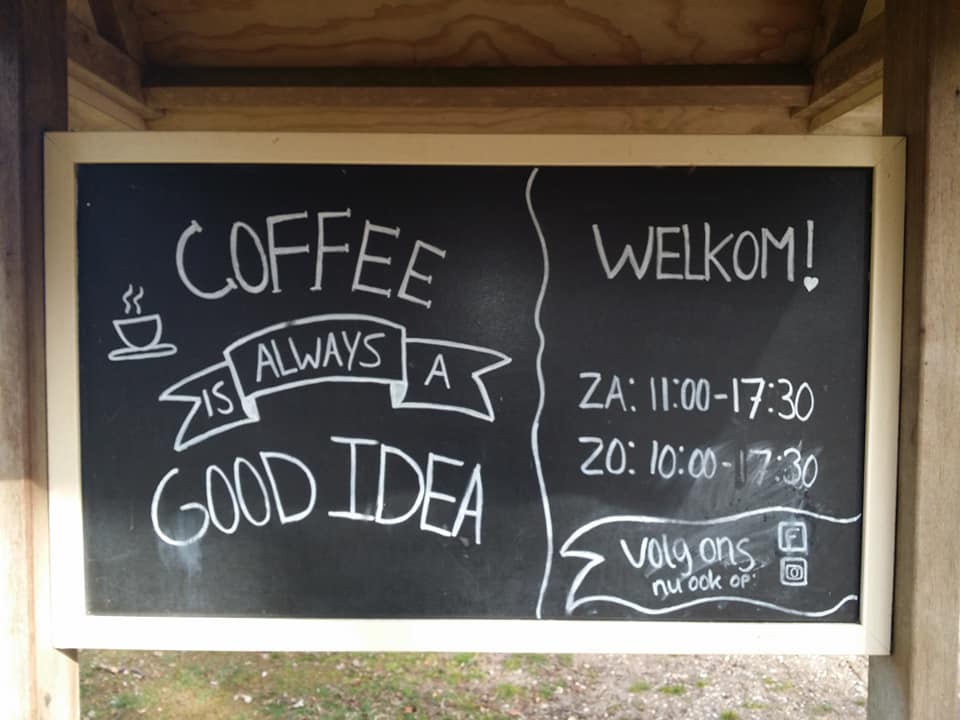 COFFEE
IS ALWAYS A
GOOD IDEA
WELKOM!
ZA: 11:00-17:30
ZO: 10:00-17:30
volg ons
nu ook op:
F